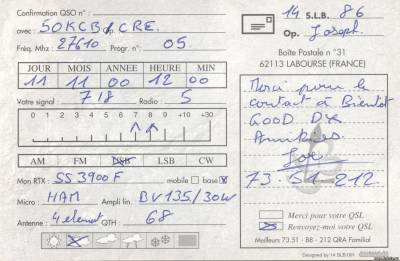 Confirmation QSO n° :
avec : 50KCB & CRE.
Fréq. Mhz : 27610 Progr. n° : 05.
JOUR MOIS ANNEE HEURE MIN
11 11 00 12 00
Votre signal : 718 Radio : 5
0 1 2 3 4 5 6 7 8 9 +10 +30
AM FM USB LSB CW
Mon RTX : SS 3900 F mobile base
Micro : HAM Ampli lin. BV135/30W
Antenne : 4 element QTH : 68
14 S.L.B. 86
Op. Joseph.
Boîte Postale n°31
62113 LABOURSE (FRANCE)
Merci pour le
contact à Bientot
GOOD DX
Amitiées
Joe
73-51 212
Merci pour votre QSL
Renvoyez-moi votre QSL
Meilleurs 73.51 - 88 - 212 QRA Familial
Designed by 14 SLB 081